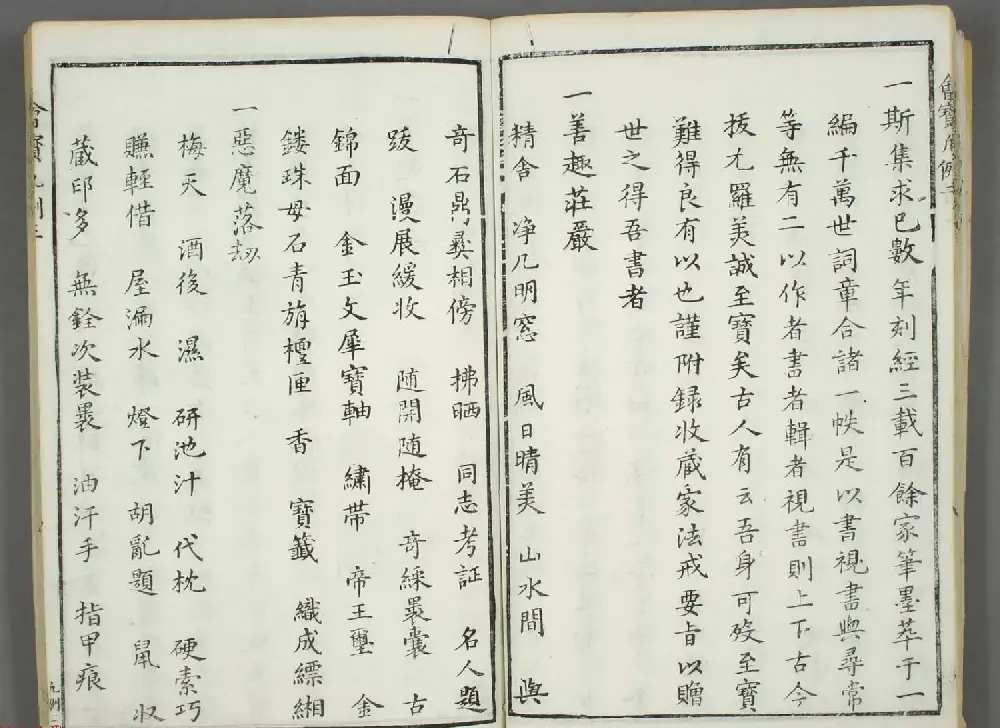 一斯集求已數年刻經三載百餘家筆墨萃于一
編千萬世詞章合諸一帙是以書視書與尋常
等無有二以作者書者輯者視書則上下古今
拔尤羅美誠至寶矣古人有云吾身可歿至寶
難得良有以也謹附録收蔵家法戒要旨以贈
世之得吾書者
一善趣莊嚴
精舎 净几明窓 風日晴美 山水間 與
竒石鼎彜相傍 拂晒 同志考証 名人題
跋 漫展緩收 随開随掩 竒綵褁囊 古
錦面 金玉文犀寶軸 繡帶 帝王璽 金
鏤珠母石青旃檀匣 香 寶籤 織成縹緗
一惡魔落劫
梅天 酒後 濕 研池汁 代枕 硬索巧
賺輕借 屋漏水 燈下 胡亂題 鼠 收
蔵印多 無銓次装褁 油汗手 指甲痕